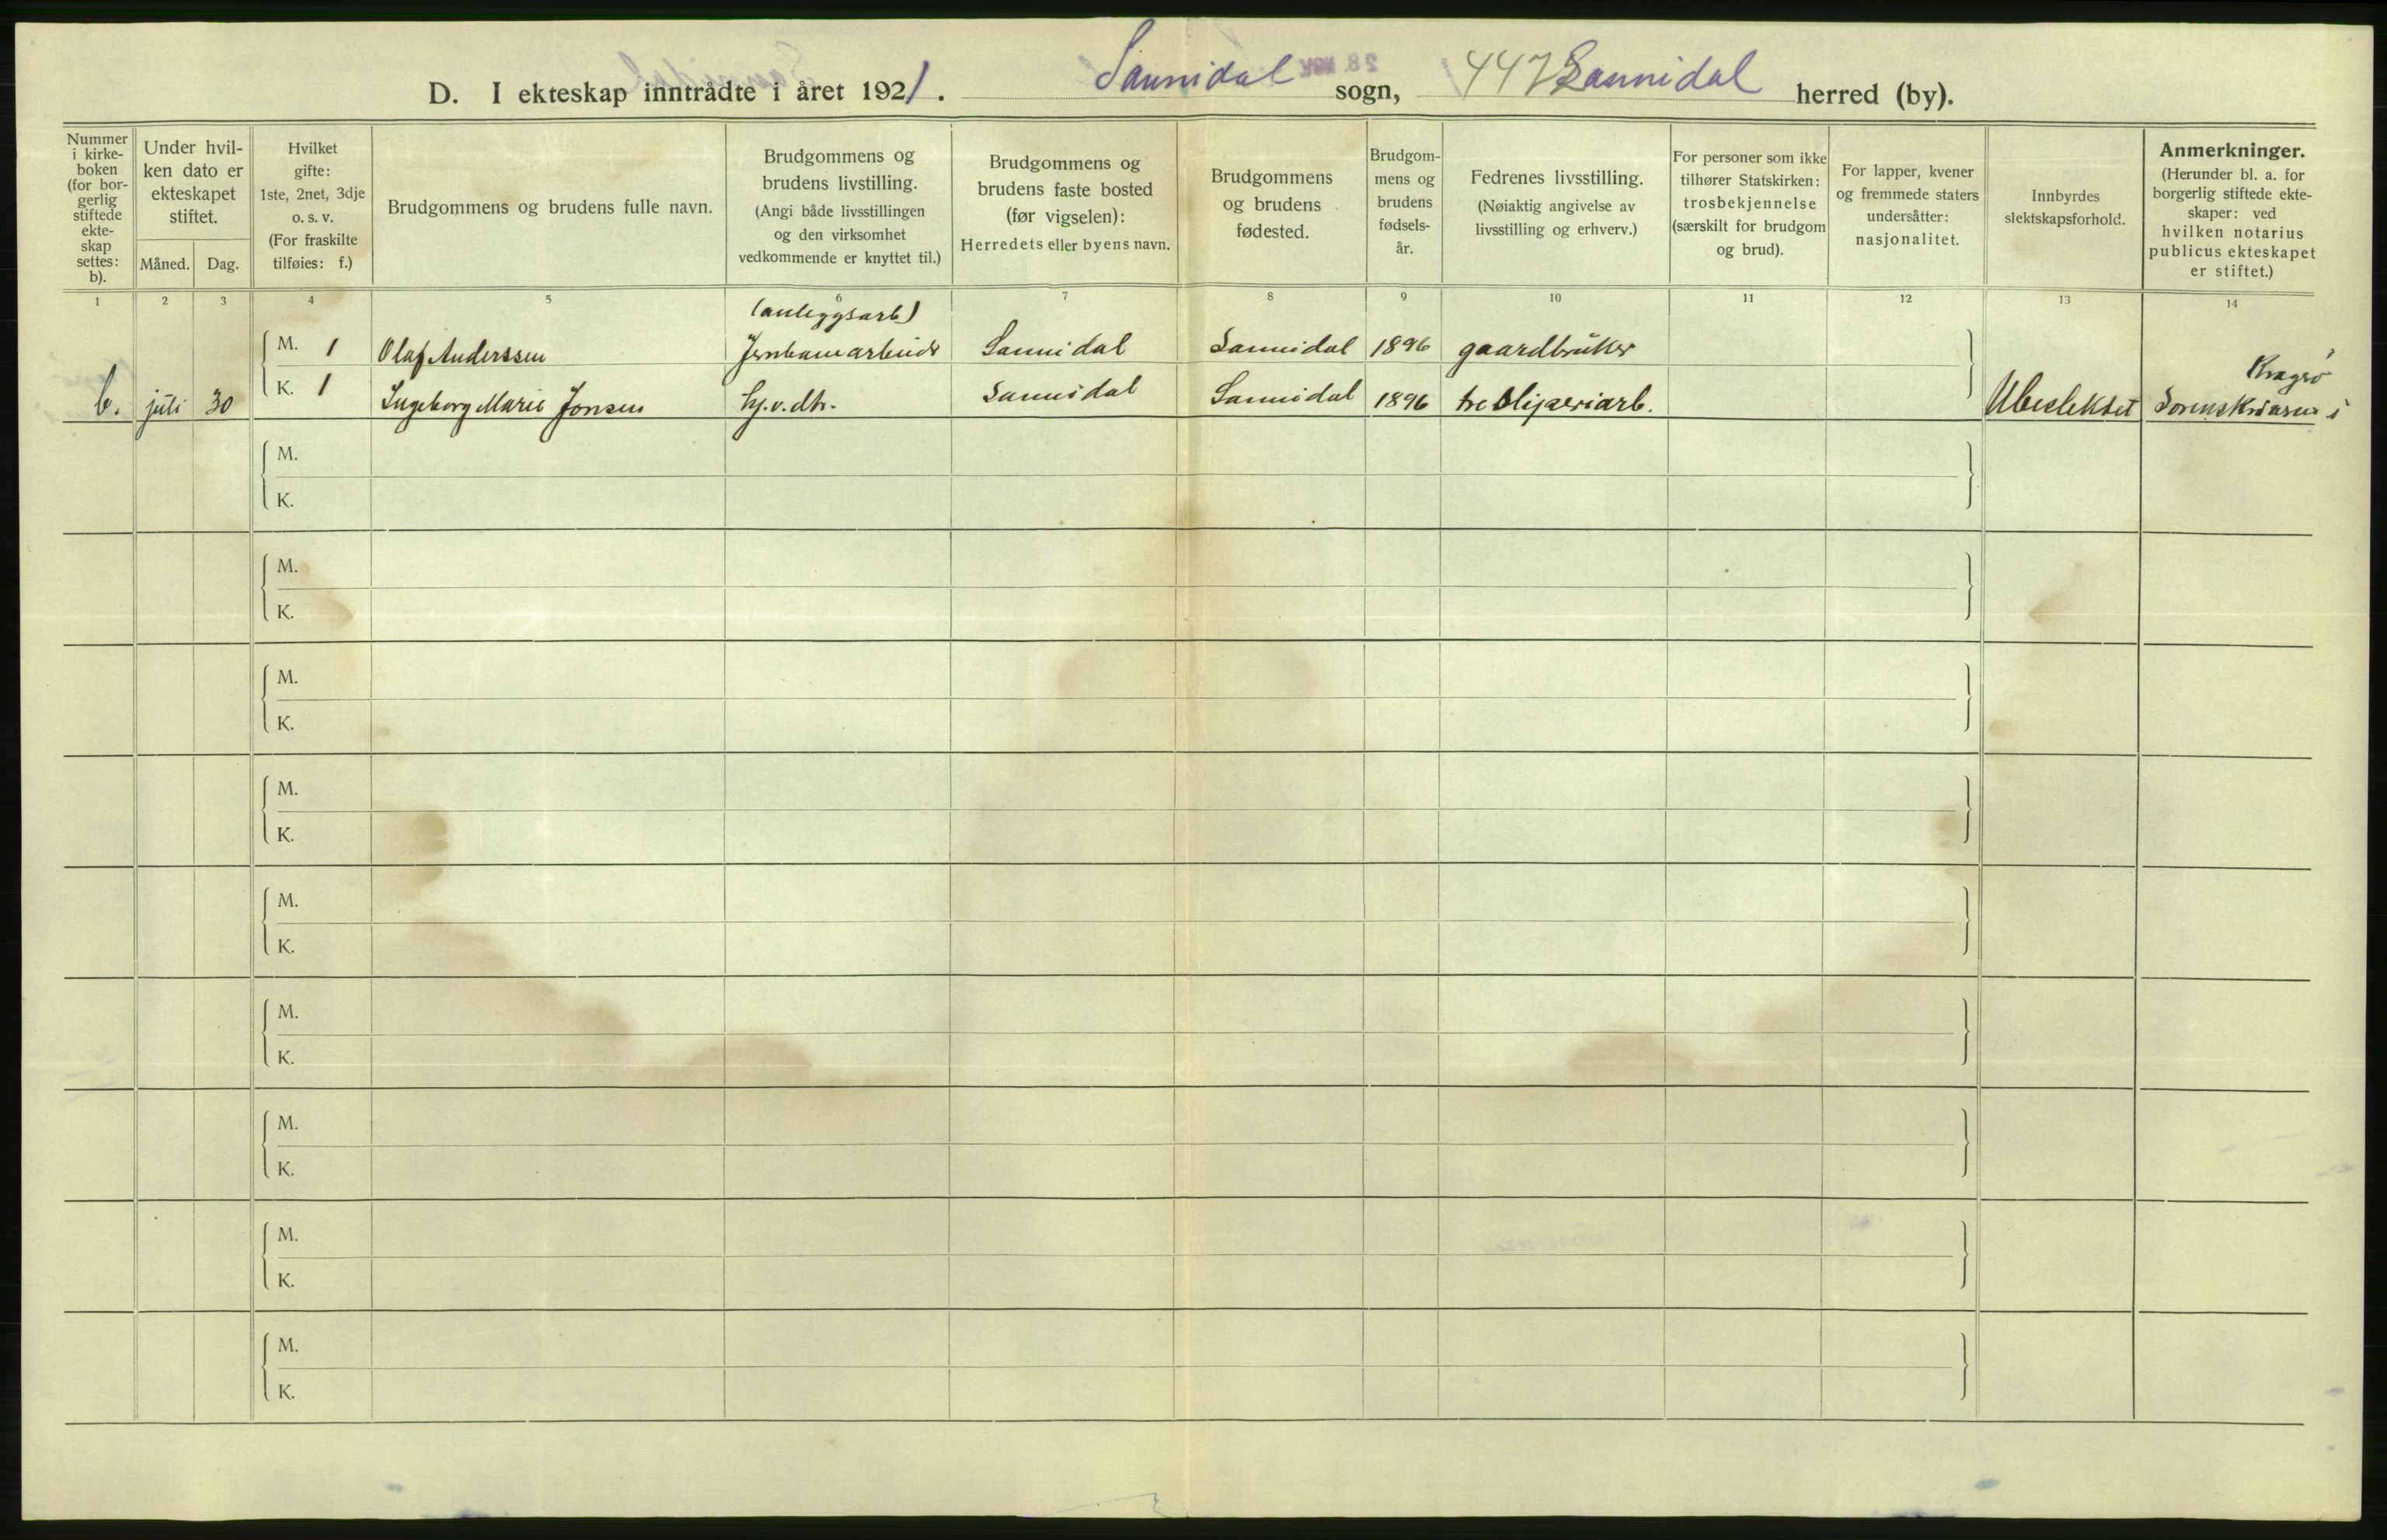 D. I ekteskap inntrådte i året 1921. Sannidal sogn, 447 Sannidal herred (by).
Nummer
i kirke-
boken
(for bor-
gerlig
stiftede
ekte-
skap
settes:
b).
Under hvil-
ken dato er
ekteskapet
stiftet.
Måned. Dag.
Hvilket
gifte:
1ste, 2net, 3dje
o. s. v.
(For fraskilte
tilføies: f.)
Brudgommens og brudens fulle navn.
Brudgommens og
brudens livstilling.
(Angi både livsstillingen
og den virksomhet
vedkommende er knyttet til.)
Brudgommens og
brudens faste bosted
(før vigselen):
Herredets eller byens navn.
Brudgommens
og brudens
fødested.
Brudgom-
mens og
brudens
fødsels-
år.
Fedrenes livsstilling.
(Nøiaktig angivelse av
livsstilling og erhverv.)
For personer som ikke
tilhører Statskirken:
trosbekjennelse
(særskilt for brudgom
og brud).
For lapper, kvener
og fremmede staters
undersåtter:
nasjonalitet.
Innbyrdes
slektskapsforhold.
Anmerkninger.
(Herunder bl. a. for
borgerlig stiftede ekte-
skaper: ved
hvilken notarius
publicus ekteskapet
er stiftet.)
1 2 3 4 5 6 7 8 9 10 11 12 13 14
(anleggsarb)
M. 1 Olaf Anderssen Jernbanearbeider Sannidal Sannidal 1896 gaardbruker
Kragrø
b. juli 30 K. 1 Ingeborg Marie Jonsen hj.v.dtr. Sannidal Sannidal 1896 tresliperiarb. Ubeslektet Sorenskriveren i
M.
K.
M.
K.
M.
K.
M.
K.
M.
K.
M.
K.
M.
K.
M.
K.
M.
K.